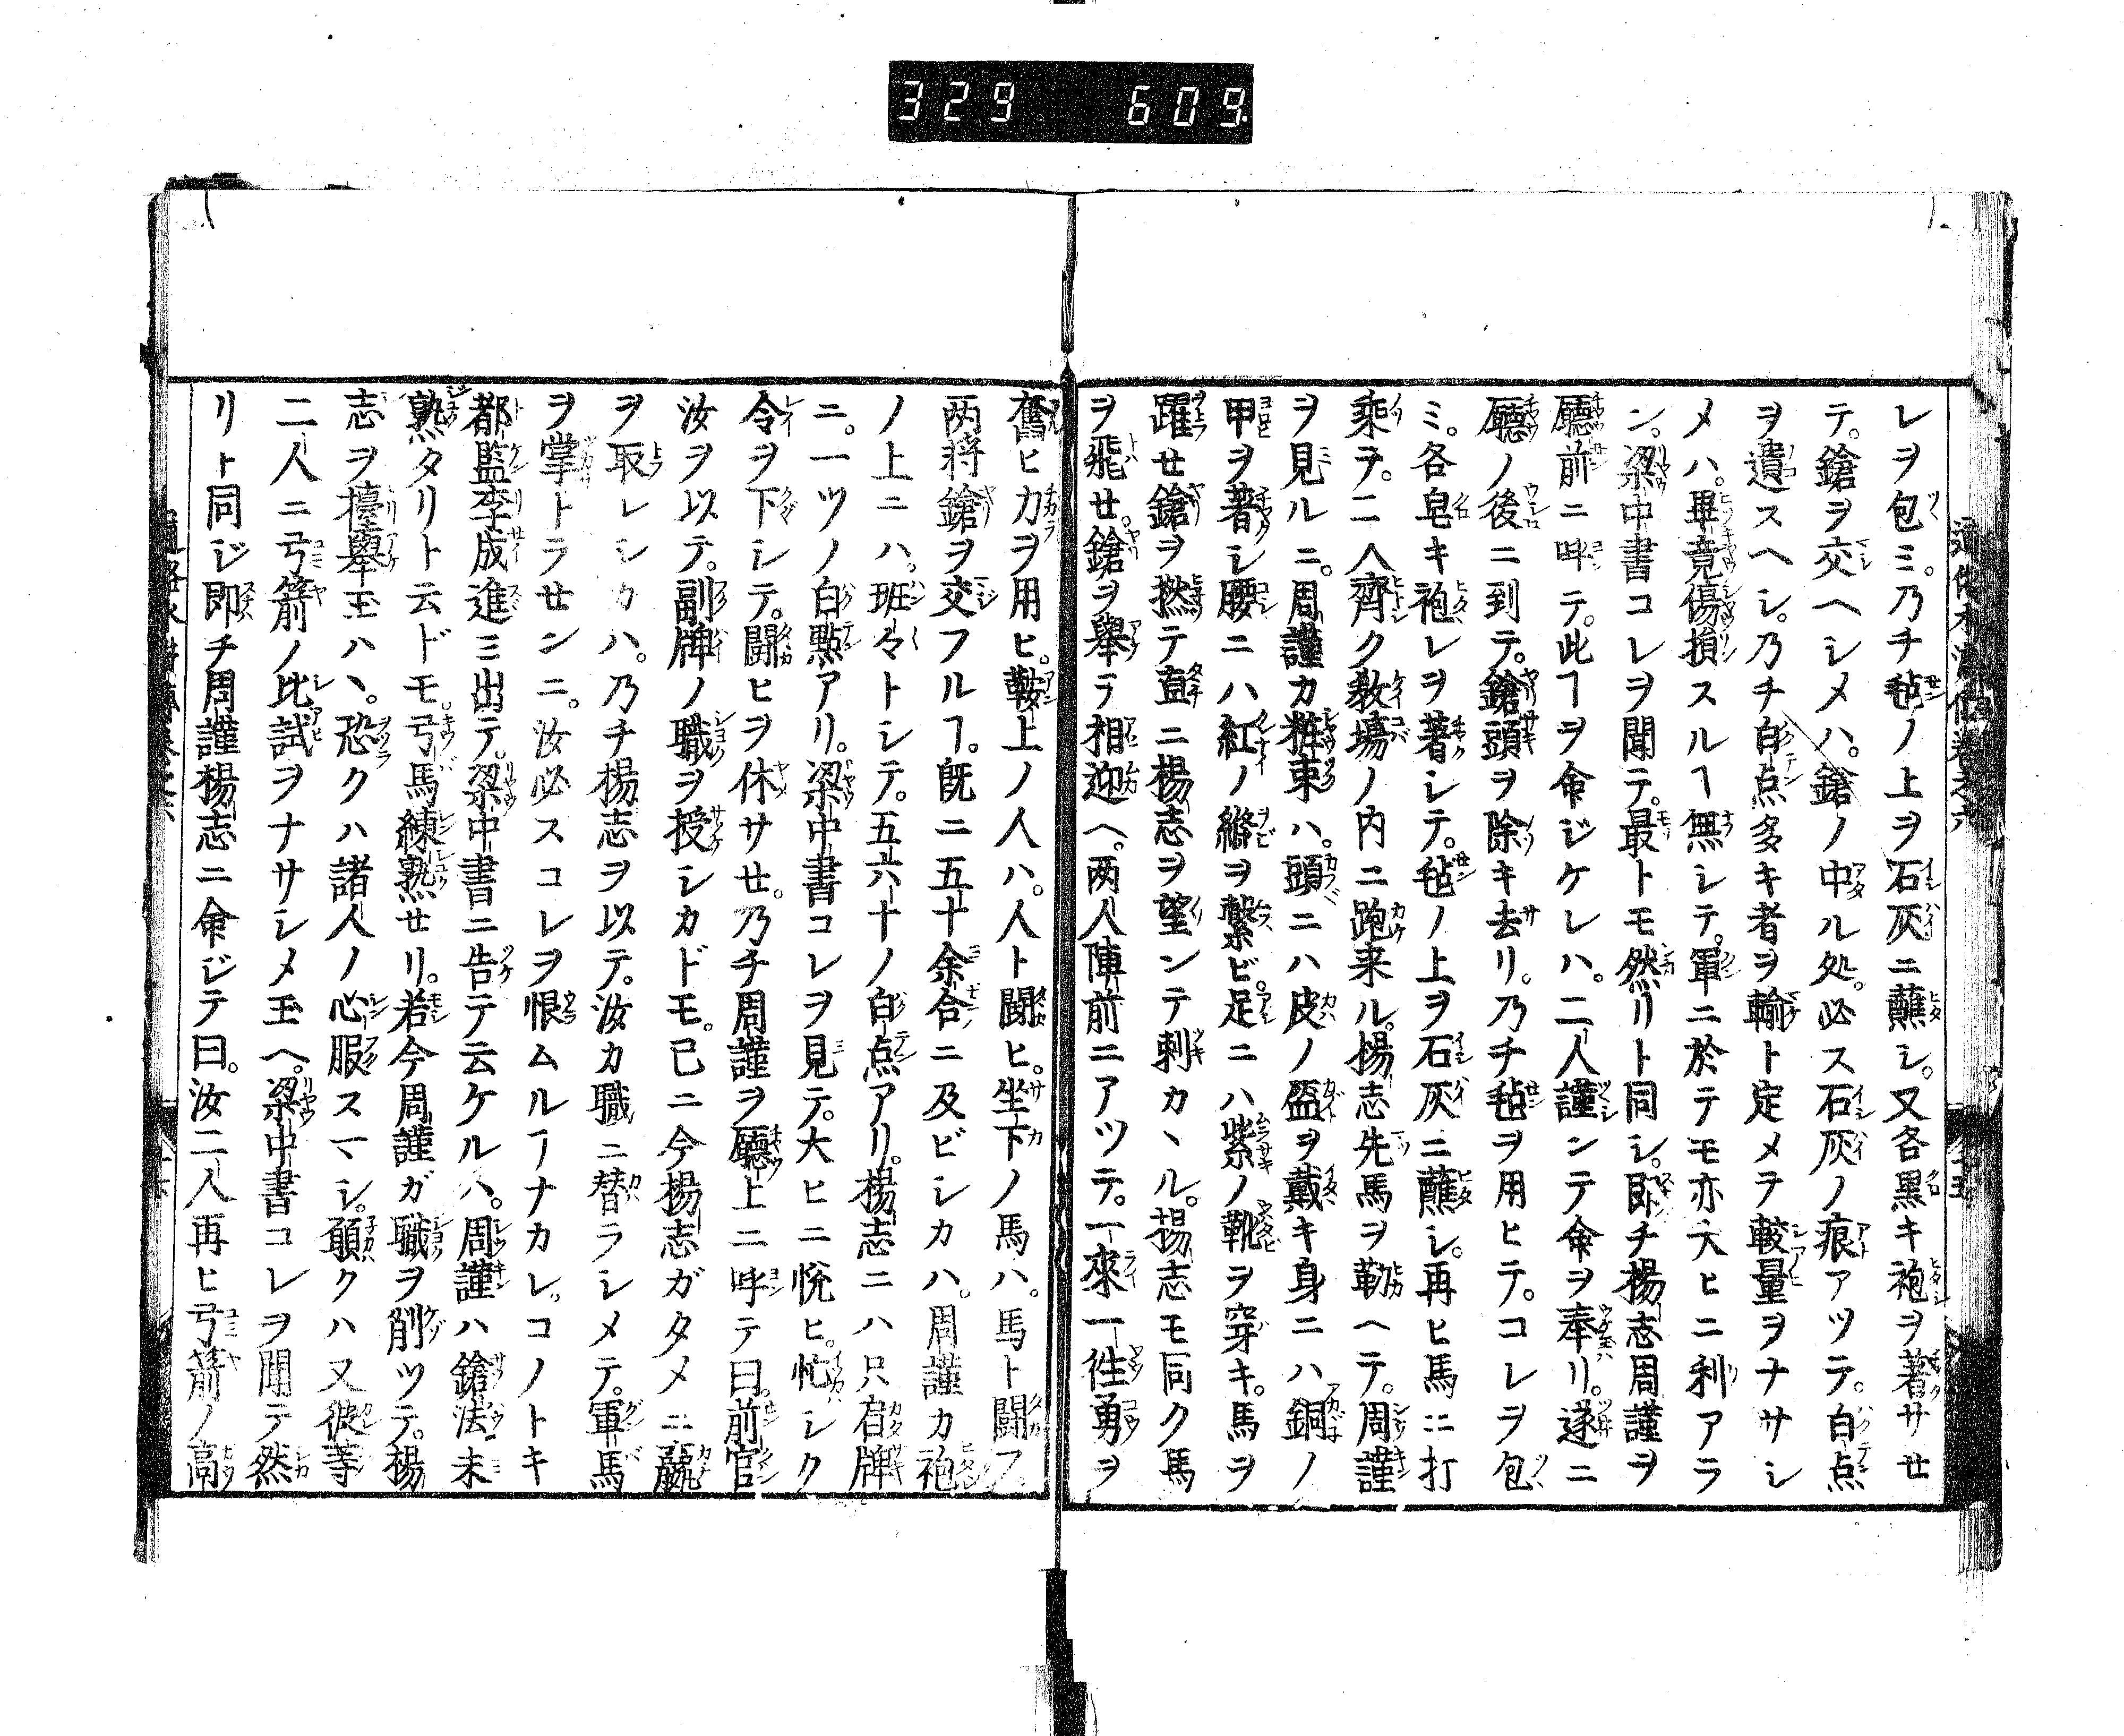 329 609
レヲ包ミ。乃チ毡ノ上ヲ石灰ニ蘸シ。又各黒キ袍ヲ著サセ
テ。鎗ヲ交ヘシメハ。鎗ノ中ル处。必ス石灰ノ痕アツテ。白点
ヲ遺スヘシ。乃チ白点多キ者ヲ輸ト定メテ較量ヲナサシ
メハ。畢竟傷損スルヿ無シテ。軍ニ於テモ亦大ヒニ利アラ
ン。梁中書コレヲ聞テ。最トモ然リト同シ。即チ楊志周謹ヲ
廳前ニ呼テ。此ヿヲ命ジケレハ。二人謹ンテ命ヲ奉リ。遂ニ
廳ノ後ニ到テ。鎗頭ヲ除キ去リ。乃チ毡ヲ用ヒテ。コレヲ包
ミ。各皂キ袍レヲ著シテ。毡ノ上ヲ石灰ニ蘸シ。再ヒ馬ニ打
乘テ。二人齊ク教塲ノ内ニ跑来ル。楊志先馬ヲ勒ヘテ。周謹
ヲ見ルニ。周謹カ粧束ハ。頭ニハ皮ノ盔ヲ戴キ身ニハ銅ノ
甲ヲ著シ腰ニハ紅ノ縧ヲ繋ビ。足ニハ紫ノ靴ヲ穿キ。馬ヲ
躍セ鎗ヲ撚テ直ニ楊志ヲ望ンテ刺カヽル。揚志モ同ク馬
ヲ飛セ。鎗ヲ擧ラ相迎ヘ。两人陣前ニアツテ。一來一徃勇ヲ
奮ヒ力ヲ用ヒ。鞍上ノ人ハ。人ト闘ヒ。坐下ノ馬ハ。馬ト闘フ。
两将鎗ヲ交フルヿ。既ニ五十余合ニ及ビシカハ。周謹カ袍
ノ上ニハ。班々トシテ。五六十ノ白点アリ。楊志ニハ只肩牌
ニ。一ツノ白點アリ。梁中書コレヲ見テ。大ヒニ悦ヒ。忙シク
令ヲ下シテ。闘ヒヲ休サセ。乃チ周謹ヲ廳上ニ呼テ曰。前官
汝ヲ以テ。副牌ノ職ヲ授シカドモ。已ニ今楊志ガタメニ嬴
ヲ取レシカハ。乃チ楊志ヲ以テ。汝カ職ニ替ラシメテ。軍馬
ヲ掌トラセンニ。汝必スコレヲ恨ムルヿナカレ。コノトキ
都監李成進ミ出テ。梁中書ニ告テ云ケルハ。周謹ハ鎗法未
熟タリト云ドモ。弓馬練熟セリ。若今周謹ガ職ヲ削ツテ。楊
志ヲ擡舉玉ハヽ。恐クハ諸人ノ心服スマシ。願クハ又彼等
二人ニ弓箭ノ比試ヲナサシメ玉ヘ。梁中書コレヲ聞テ然
リト同ジ即チ周謹楊志ニ命ジテ曰。汝二人再ヒ弓箭ノ高